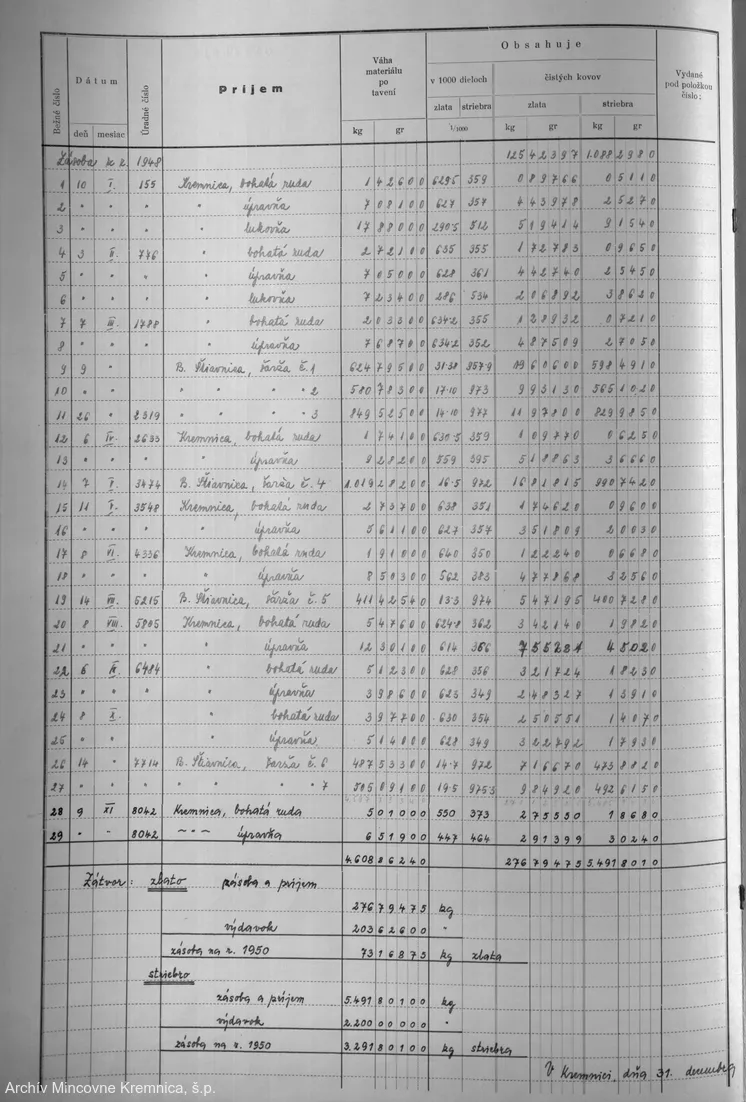 Obsahuje
Bežné číslo Dátum Úradné číslo Príjem Váha materiálu po tavení v 1000 dieloch čistých kovov Vydané pod položkou číslo:
deň mesiac zlata striebra zlata striebra
kg gr 1/1000 kg gr kg gr
Zásoba k r. 1948 125 42397 1.088 2980
1 10 I. 155 Kremnica, bohatá ruda 1 42600 629·5 359 0 89766 0 5110
2 " " " " úpravňa 7 08100 627 357 4 43978 2 5270
3 " " " " lukovňa 17 88000 290·5 512 5 19414 9 1540
4 3 II. 776 " bohatá ruda 2 72100 635 355 1 72783 0 9650
5 " " " " úpravňa 7 05000 628 361 4 42740 2 5450
6 " " " lukovňa 7 23400 286 534 2 06892 3 8620
7 7 III. 1788 " bohatá ruda 2 03300 634·2 355 1 28932 0 7210
8 " " " úpravňa 7 68700 634·2 352 4 87509 2 7050
9 9 " B. Štiavnica, várža č. 1 624 79500 31·38 957·9 19 60600 598 4910
10 " " " " 2 580 78300 17·10 973 9 93130 565 1020
11 26 " 2319 " " " 3 849 52500 14·10 977 11 97800 829 9850
12 6 IV. 2633 Kremnica, bohatá ruda 1 74100 630·5 359 1 09770 0 6250
13 " " " úpravňa 9 28200 559 395 5 18863 3 6660
14 7 V. 3474 B. Štiavnica, várža č. 4 1.019 28200 16·5 972 16 81815 990 7420
15 11 V. 3548 Kremnica, bohatá ruda 2 73700 638 351 1 74620 0 9600
16 " " " úpravňa 5 61100 627 357 3 51809 2 0030
17 8 VI. 4336 Kremnica, bohatá ruda 1 91000 640 350 1 22240 0 6680
18 " " " úpravňa 8 50300 562 383 4 77868 3 2560
19 14 VII. 5215 B. Štiavnica, várža č. 5 411 42540 13·3 974 5 47195 400 7280
20 8 VIII. 5805 Kremnica, bohatá ruda 5 47600 624·8 362 3 42140 1 9820
21 " " " úpravňa 12 30100 614 366 7 55281 4 5020
22 6 IX. 6484 " bohatá ruda 5 12300 628 356 3 21724 1 8230
23 " " " " úpravňa 3 98600 623 349 2 48327 1 3910
24 8 X. " bohatá ruda 3 97700 630 354 2 50551 1 4070
25 " " " úpravňa 5 14000 628 349 3 22792 1 7930
26 14 " 7714 B. Štiavnica, várža č. 6 487 53300 14·7 972 7 16670 473 8820
27 " " " " " " 7 505 09100 19·5 975·3 9 84920 492 6150
28 9 XI 8042 Kremnica, bohatá ruda 5 01000 550 373 2 75550 1 8680
29 " " 8042 " úpravňa 6 51900 447 464 2 91399 3 0240
4.608 86240 276 79475 5.491 8010
Zátvor: zlato zásoba a príjem
276 79475 kg
výdavok 203 62600 "
zásoba na r. 1950 73 16875 kg zlata
striebro
zásoba a príjem 5.491 80100 kg
výdavok 2.200 00000 "
zásoba na r. 1950 3.291 80100 kg striebra
V Kremnici, dňa 31. decembra
Archív Mincovne Kremnica, š.p.